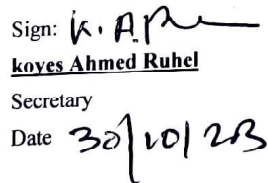 Sign: K. A. R
koyes Ahmed Ruhel
Secretary
Date 30/10/23